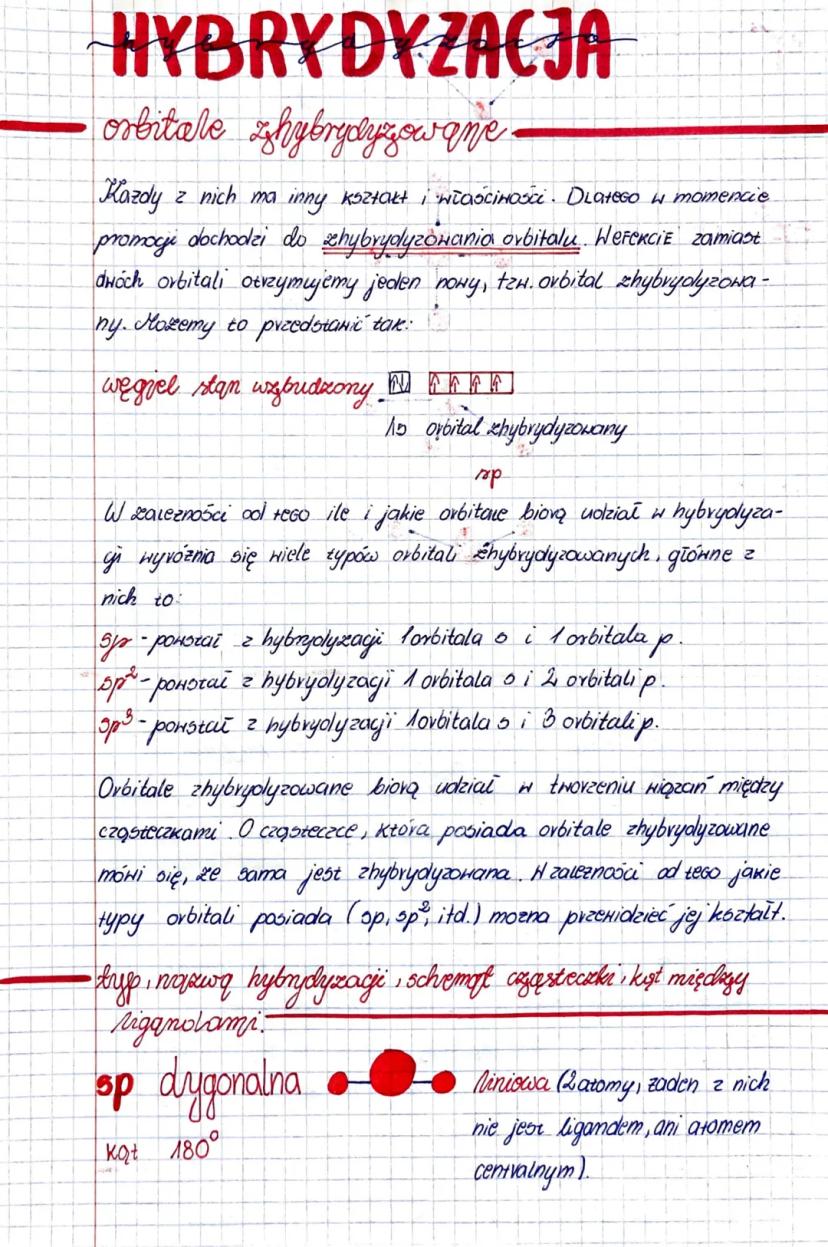 HYBRYDYZACJA
hybrydyzacja
orbitale zhybrydyzowane
Każdy z nich ma inny kształt i właściwości. Dlatego w momencie
promocji dochodzi do zhybrydyzowania orbitalu. W efekcie zamiast
dwóch orbitali otrzymujemy jeden nowy, tzw. orbital zhybrydyzowa-
ny. Możemy to przedstawić tak:
węgiel stan wzbudzony ↑↓ ↑ ↑ ↑ ↑
1s orbital zhybrydyzowany
sp
W zależności od tego ile i jakie orbitale biorą udział w hybrydyza-
cji wyróżnia się wiele typów orbitali zhybrydyzowanych, główne z
nich to:
sp - powstał z hybrydyzacji 1 orbitala s i 1 orbitala p.
sp² - powstał z hybrydyzacji 1 orbitala s i 2 orbitali p.
sp³ - powstał z hybrydyzacji 1 orbitala s i 3 orbitali p.
Orbitale zhybrydyzowane biorą udział w tworzeniu wiązań między
cząsteczkami. O cząsteczce, która posiada orbitale zhybrydyzowane
mówi się, że sama jest zhybrydyzowana. W zależności od tego jakie
typy orbitali posiada (sp, sp², itd.) można przewidzieć jej kształt.
typ, nazwa hybrydyzacji, schemat cząsteczki, kąt między
ligandami:
sp dygonalna liniowa (2 atomy, żaden z nich
kąt 180° nie jest ligandem, ani atomem
centralnym).